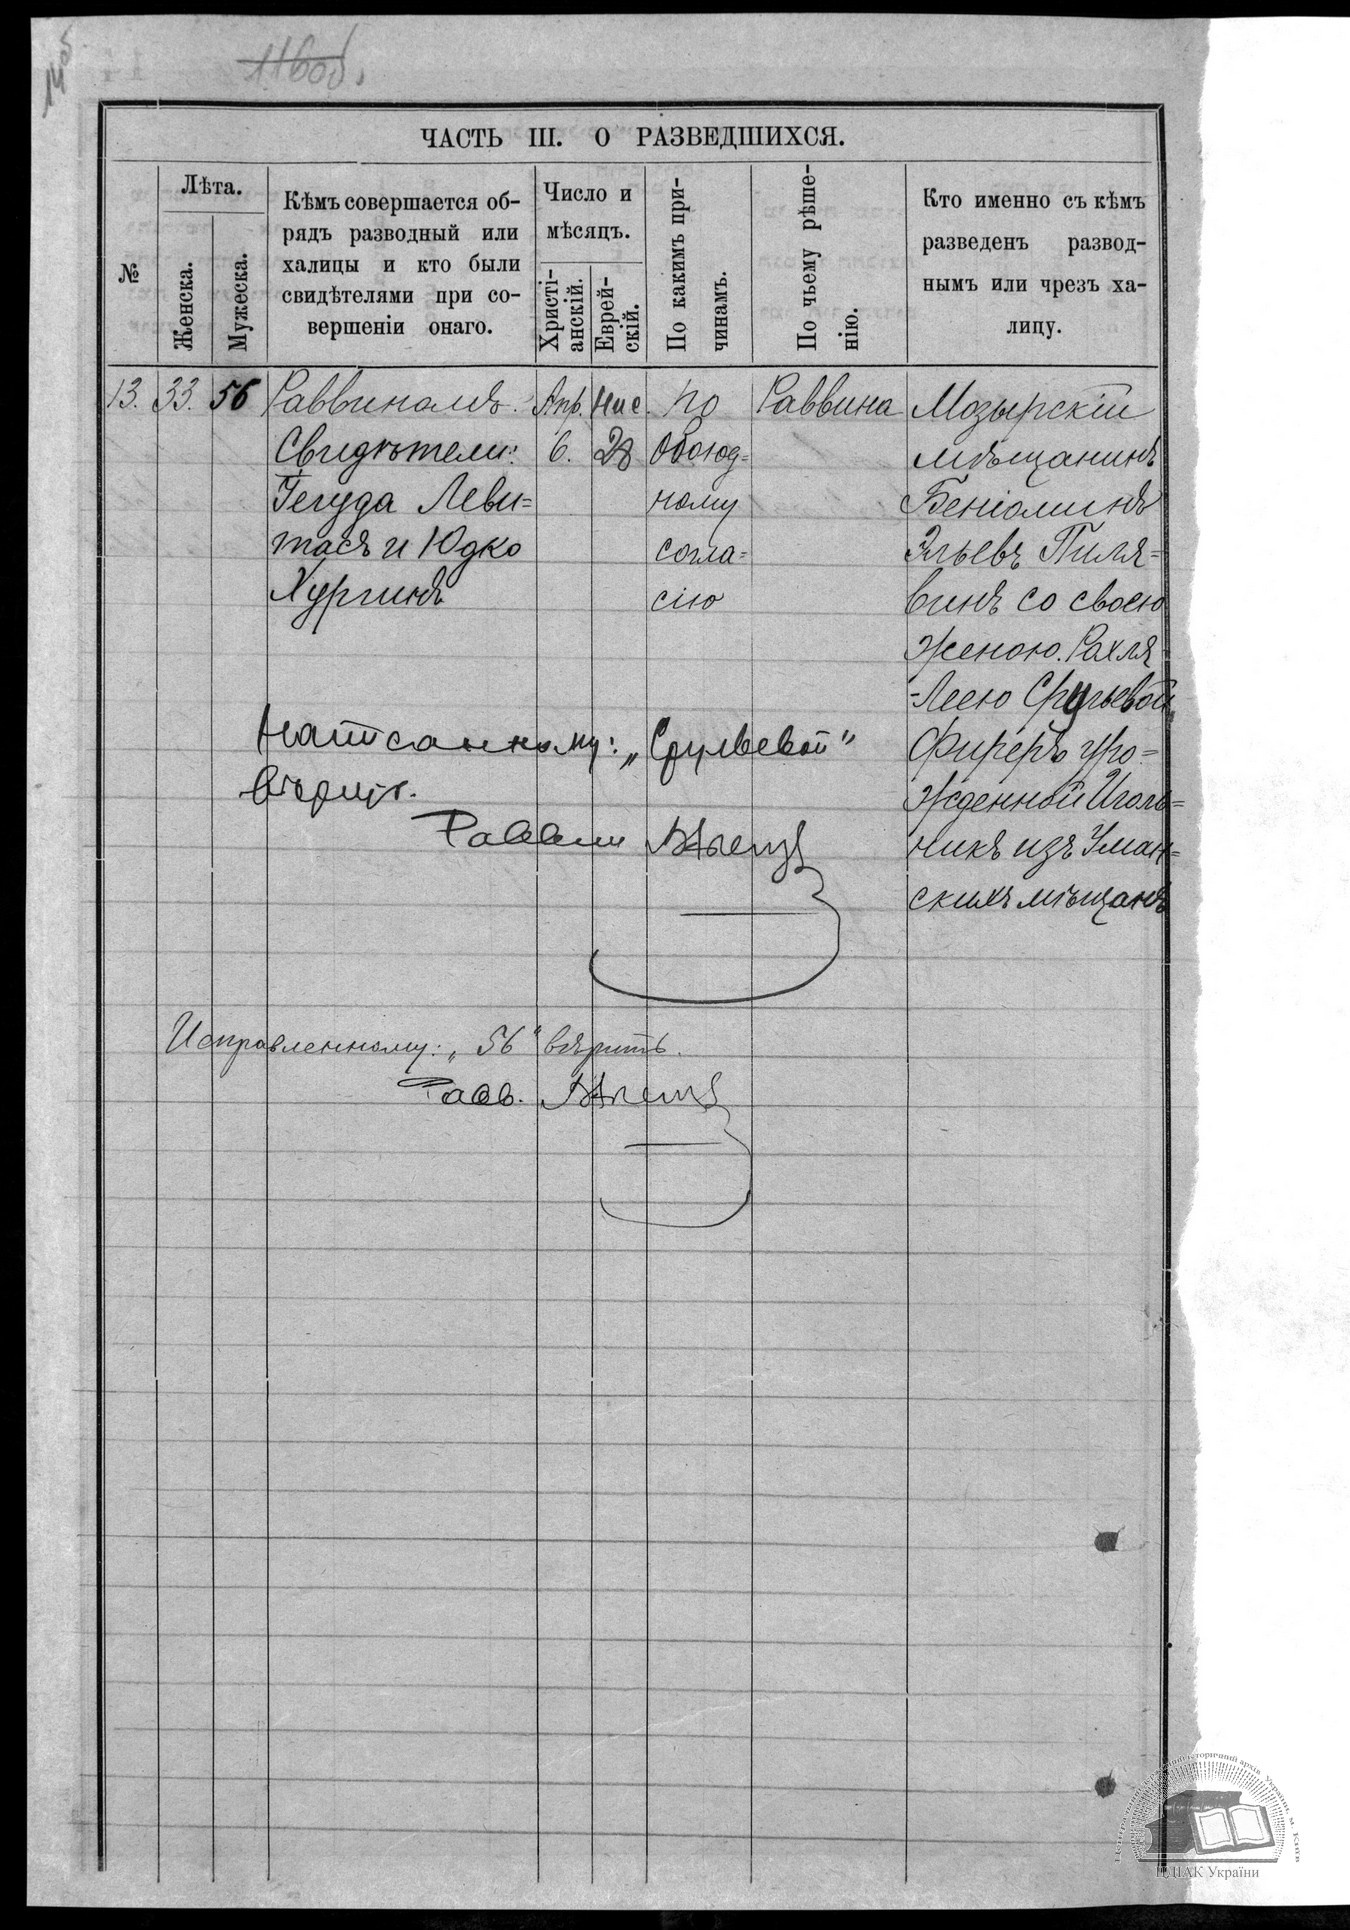 14 б
116 об.
ЧАСТЬ III. О РАЗВЕДШИХСЯ.
№
Лѣта.
Женска.
Мужеска.
Кѣмъ совершается об-
рядъ разводный или
халицы и кто были
свидѣтелями при со-
вершеніи онаго.
Число и
мѣсяцъ.
Христі-
анскій.
Еврей-
скій.
По какимъ при-
чинамъ.
По чьему рѣше-
нію.
Кто именно съ кѣмъ
разведенъ развод-
нымъ или чрезъ ха-
лицу.
13.
33.
56
Раввиномъ.
Свидѣтели:
Іегуда Леви=
тасъ и Юдко
Хургинъ
Апр.
6.
Нис.
28
по
обоюд=
ному
согла=
сію
Раввина
Мозырскій
мѣщанинъ
Беніоминъ
Эльевъ Пиля=
винъ со своею
женою Рахля=
-Леею Срульевой
Фиреръ уро=
жденной Иголь=
никъ изъ Уман=
скихъ мѣщанъ
Написанному: „Срульевой"
вѣрить.
Раввин
Исправленному: „56" вѣрить.
Равв.
ЦДІАК України